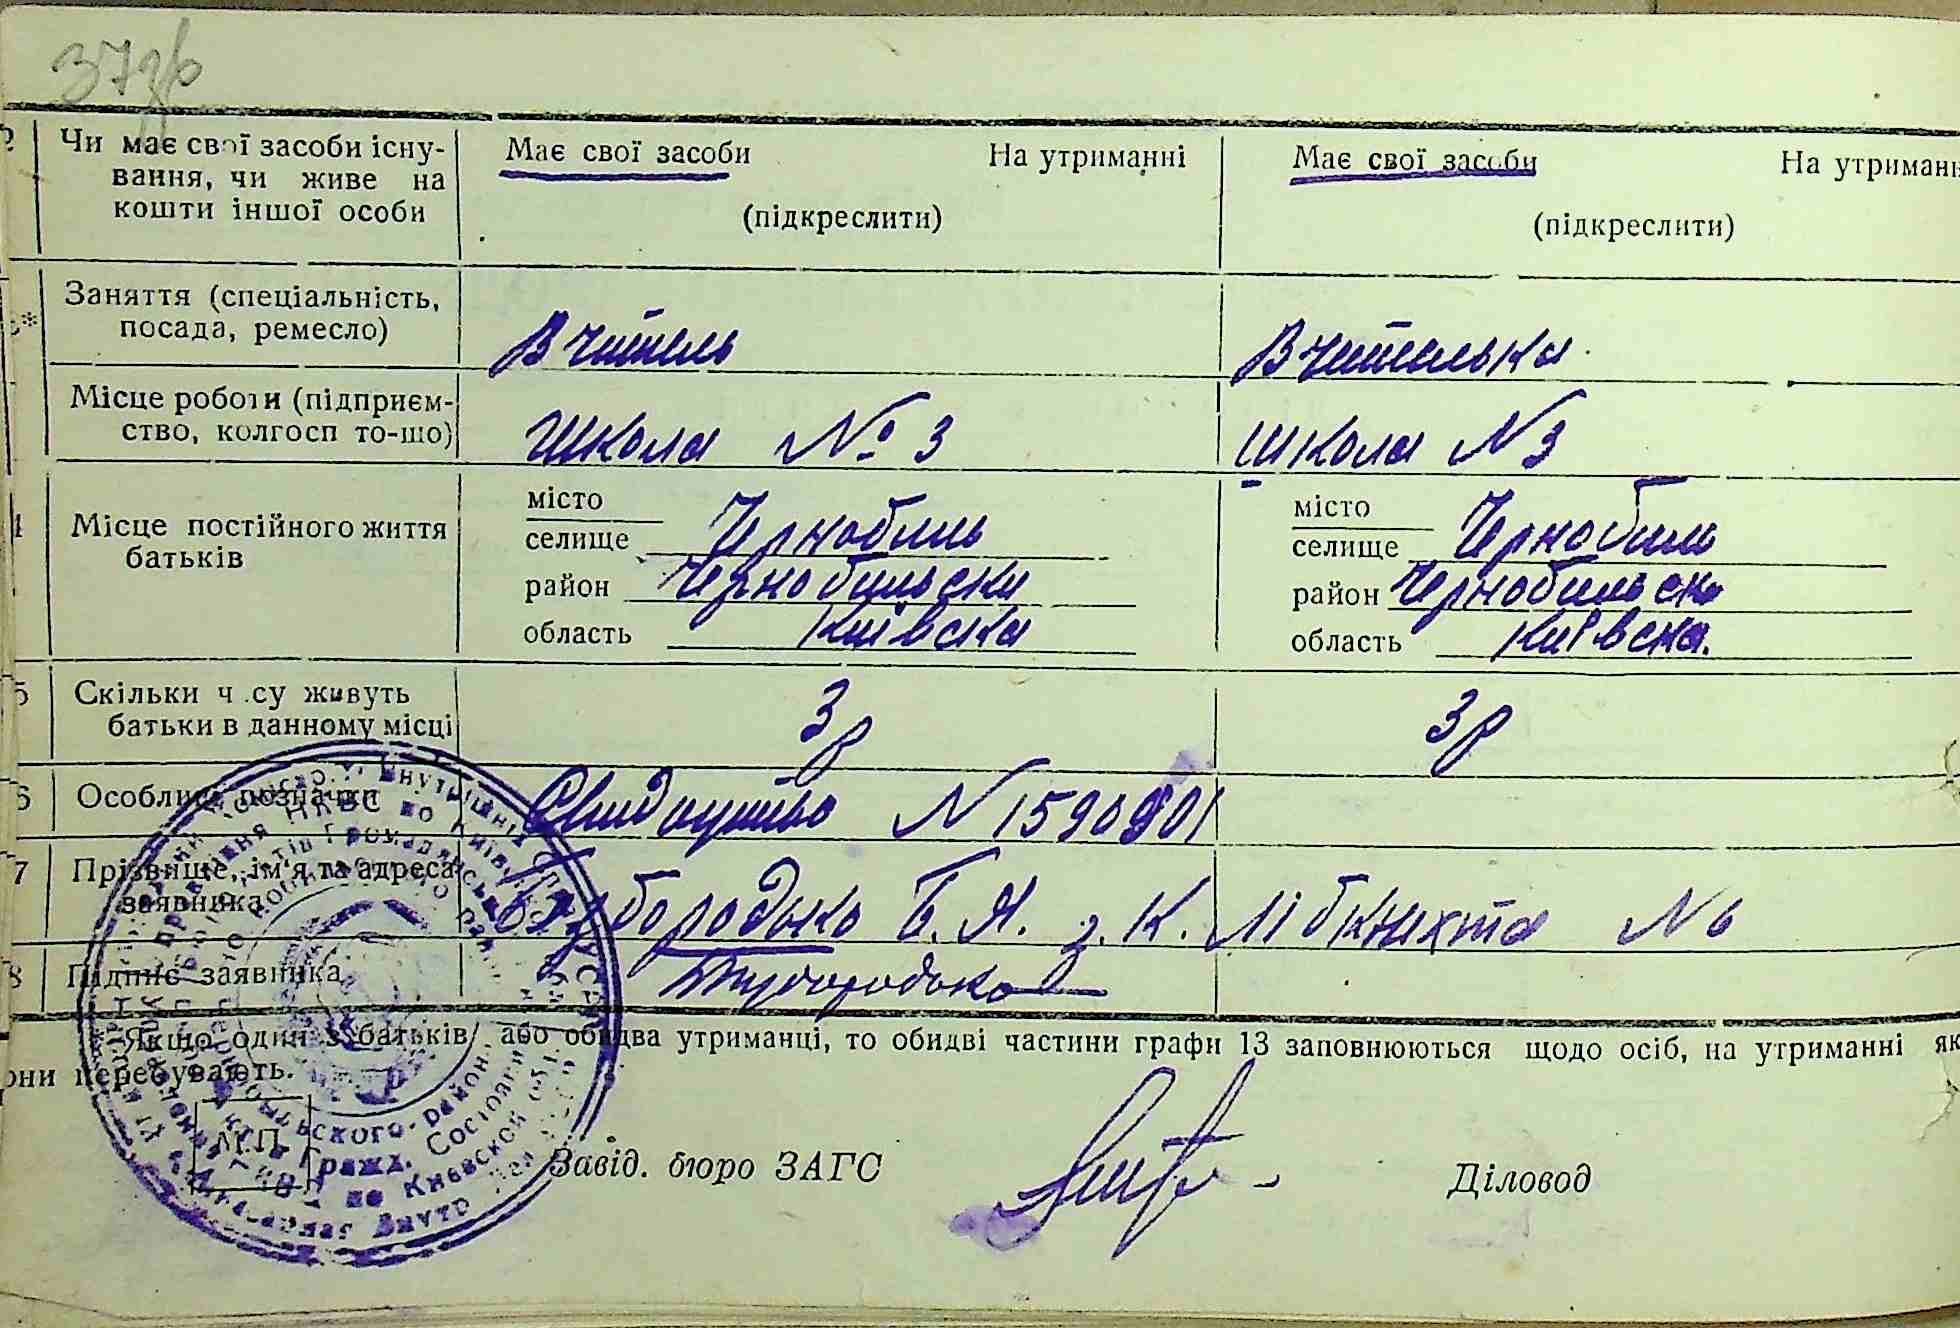 37зв
Чи має свої засоби існу-
вання, чи живе на
кошти іншої особи
Має свої засоби На утриманні
(підкреслити)
Має свої засоби На утриманн
(підкреслити)
Заняття (спеціальність,
посада, ремесло)
Вчитель
Вчителька
Місце роботи (підприєм-
ство, колгосп то-що)
Школа № 3
Школа N 3
4 Місце постійного життя
батьків
місто
селище Чернобиль
район Чернобильски
область Київска
місто
селище Чернобиль
район Чернобильск
область Київска.
5 Скільки ч су живуть
батьки в данному місці
3 р
3 р
6 Особливі позначки
N 1590901
7 Прізвище, ім'я та адреса
заявника
Б. Я. з. К. Лібкнихта N 6
8 Підпис заявника
Якщо один з батьків або обидва утриманці, то обидві частини графи 13 заповнюються щодо осіб, на утриманні як
они перебувають.
М.П.
Завід. бюро ЗАГС
Діловод